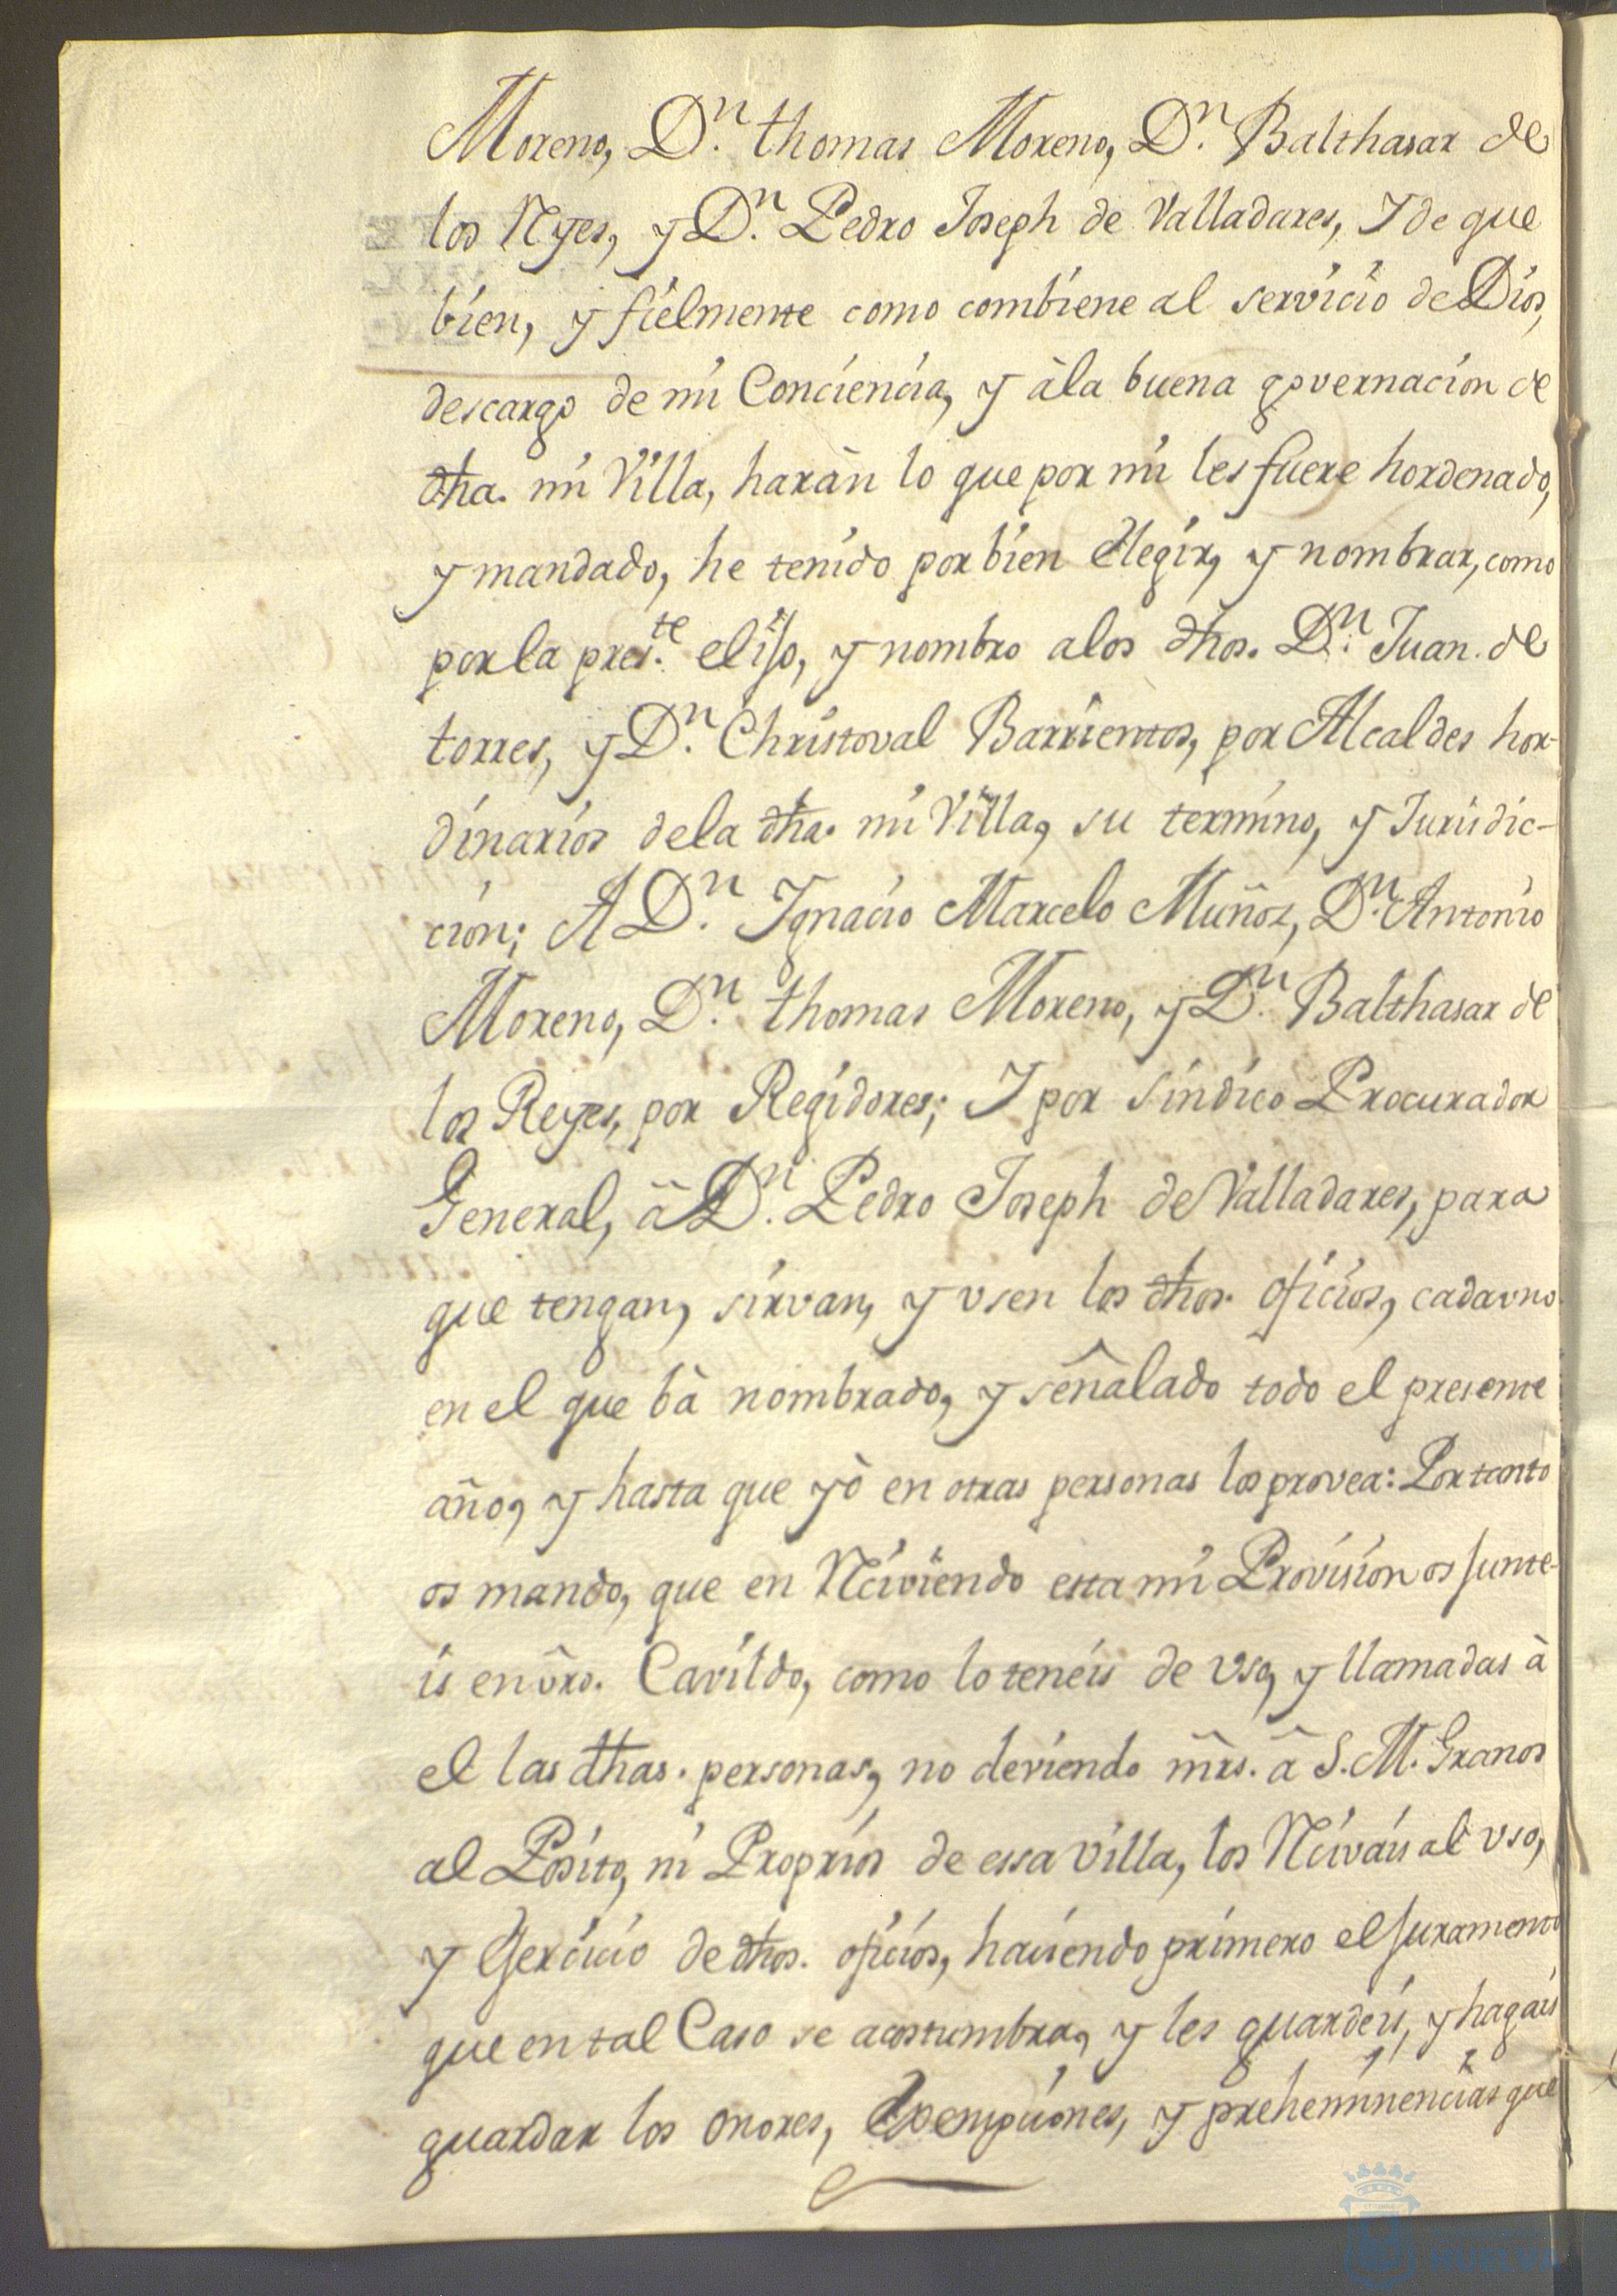 Moreno, Dn. thomas Moreno, Dn. Balthasar de
los Ryes, y Dn. Pedro Joseph de Valladares, Y de que
bien, y fielmente como combiene al servicio de Dios,
descargo de mi Conciencia, y à la buena governacion de
dha. mi Villa, haràn lo que por mi les fuere hordenado,
y mandado, he tenido por bien elegir, y nombrar, como
por la preste. elijo, y nombro a los dhos. Dn. Juan de
torres, y Dn. Christoval Barrientos, por Alcaldes hor-
dinarios de la dha. mi Villa, su termino, y Jurisdic-
cion; A Dn. Ignacio Marcelo Muñoz, Dn. Antonio
Moreno, Dn. thomas Moreno, y Dn. Balthasar de
los Reyes, por Regidores; Y por Sindico Procurador
General, â Dn. Pedro Joseph de Valladares, para
que tengan, sirvan, y vsen los dhos. oficios, cada vno
en el que bà nombrado, y señalado todo el presente
año, y hasta que yò en otras personas los provea: Por tanto
os mando, que en Rciviendo esta mi Provision os junte-
is en vro. Cavildo, como lo teneis de vso, y llamadas à
el las dhas. personas, no deviendo mrs. â S. M. Granos
al Posito, ni Proprios de essa villa, los Rcivais al vso,
y Egercicio de dhos. oficios, haciendo primero el juramento
que en tal Caso se acostumbra, y les guardeis, y hagais
guardar los onores, Exempciones, y preheminencias que
HUELVA